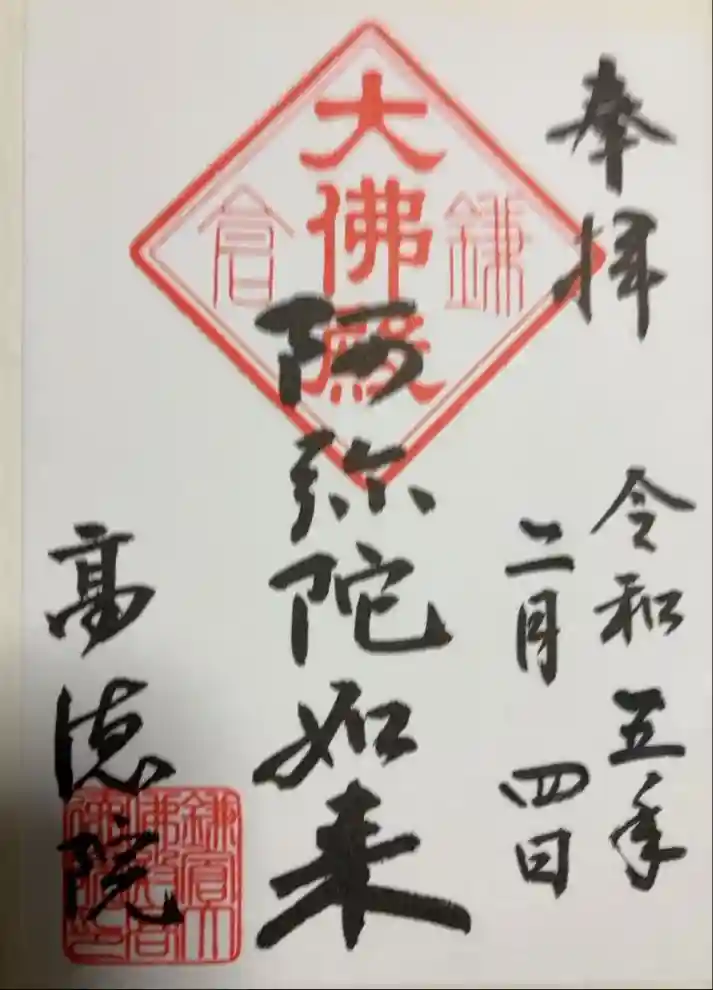 奉拝
令和五年
二月四日
大佛殿
鎌倉
阿弥陀如来
高徳院